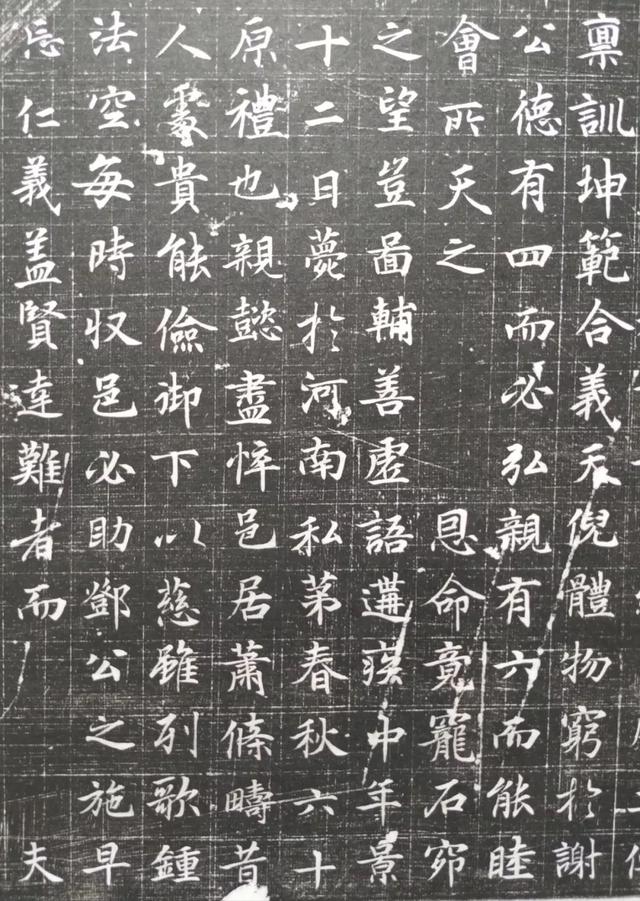 稟訓坤範合義天倪體物窮於謝
公德有四而必弘親有六而能睦
會所天之 恩命竟寵石窌
之望豈啚輔善虛語遘疾中年景
十二日薨於河南私苐春秋六十
原禮也親懿盡悴邑居蕭條疇昔
人處貴能儉御下以慈雖列歌鍾
法空每時収邑必助鄧公之施早
忘仁義盖賢達難者而 夫